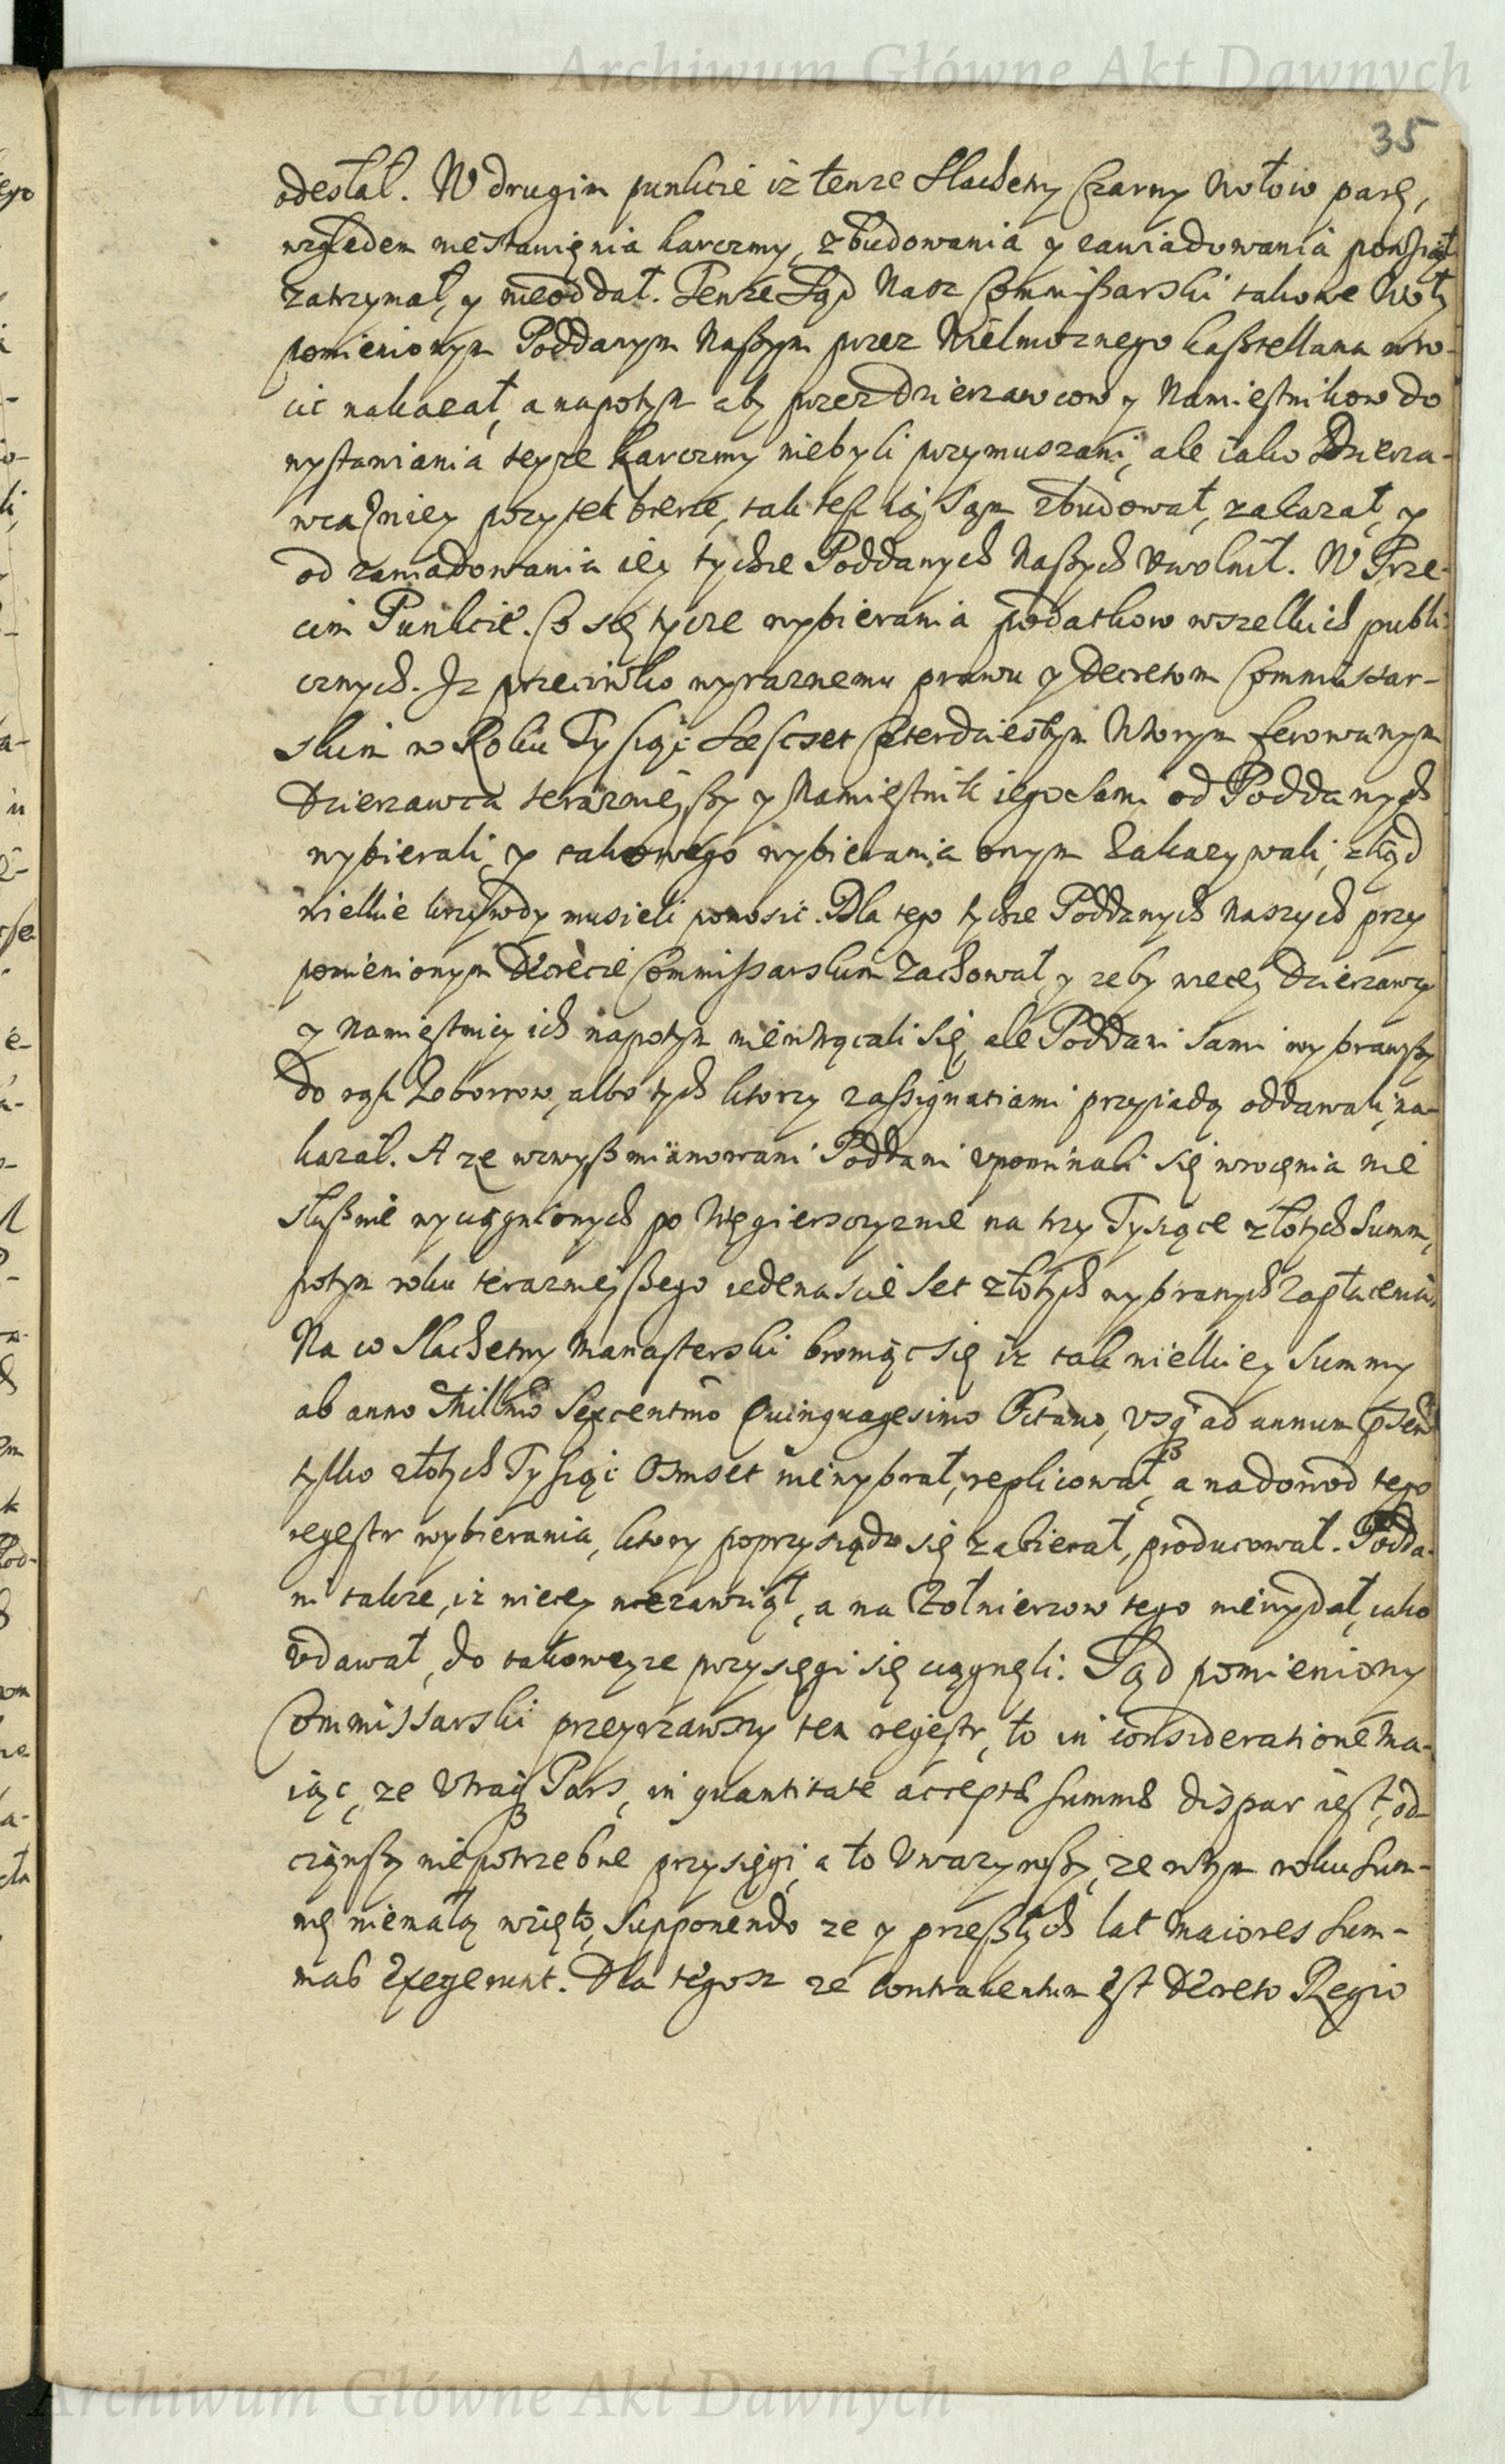 Archiwum Główne Akt Dawnych
35
odesłał. W drugim punkcie iż tenże Slachetny Czarny Wołow parę,
względem niestawięnia karczmy, zbudowania y zawiadowania
zatrzymał, y nieoddał. Tenze Sąd Nasz Commißarski takowe Woły
pomienionym Poddanym Naßym przez Wielmoznego kaßtellana wro-
cic nakazał, a napotym aby przez Dzierzawcow y Namięstnikow do
wystawiania teyze karczmy niebyli przymuszani, ale iako Dzierza-
wca z niey pozytek bierze, tak też ią sąm zbudował, zakazał, y
od zawiadowania iey tychze Poddanych Naßych Uwolnił. W Trze-
cim Punkcie. Co się tycze wybierania podatkow wszelkich publi-
cznych. Iz przeciwko wyraznemu prawu y Decretom Commissar-
skim w Roku Tysiąc Sescset Czterdziestym Wtorym ferowanym
Dzierzawca terazniejßy y Namięstnik iego sami od Poddanych
wybierali, y takowego wybierania onym Zakazywali, zkąd
wielkie krzywdy musieli ponosic. Dla tego tychze Poddanych Naszych przy
pomienionym Decrecie Commißarskim Zachował, y zeby więcey Dzierzawcy
y Namięstnicy ich napotym niewtrącali Się, ale Poddani Sami wybrawßy
do rąk Poborcow, albo tych ktorzy zaßignatiami przyiadą oddawali, na-
kazał. A ze wzwyß mianowani Poddani upominali się wrocęnia nie
słußnie wyciągnionych po Węgierszczyznie na trzy Tysiące złotych Summ,
potym roku terazniejßego iedenascie set złotych wybranych Zapłacenia.
Na co Slachetny Manasterski broniąc się iz tak wielkiey Summy
ab anno Millmo Sexcentmo Quinquagesimo Octavo, Usq ad annum psentẽ
tylko złotych Tysiąc Osmset niewybrał, replicował, a nadowod tego
regestr wybierania, ktory poprzysiądz się zabierał, producował. Podda-
ni takze, iz więcey niezawziął, a na Zołnierzow tego niewydał, iako
udawał, do takoweyze przysięgi się ciągnęli. Sąd pomieniony
Commissarski przeyrzawszy ten regestr, to in consideratione ma-
iąc, ze Utraq Pars, in quantitate accepta summa dispar iest, od-
ciąwßy niepotrzebne przysięgi, a to Uwazywßy, ze wtym roku Sum-
mę niemałą wzięto, Supponendo ze y przeßłych lat maiores Sum-
mas Exegerunt. Dla tegosz ze contraventum est Decreto Regio
Archiwum Główne Akt Dawnych